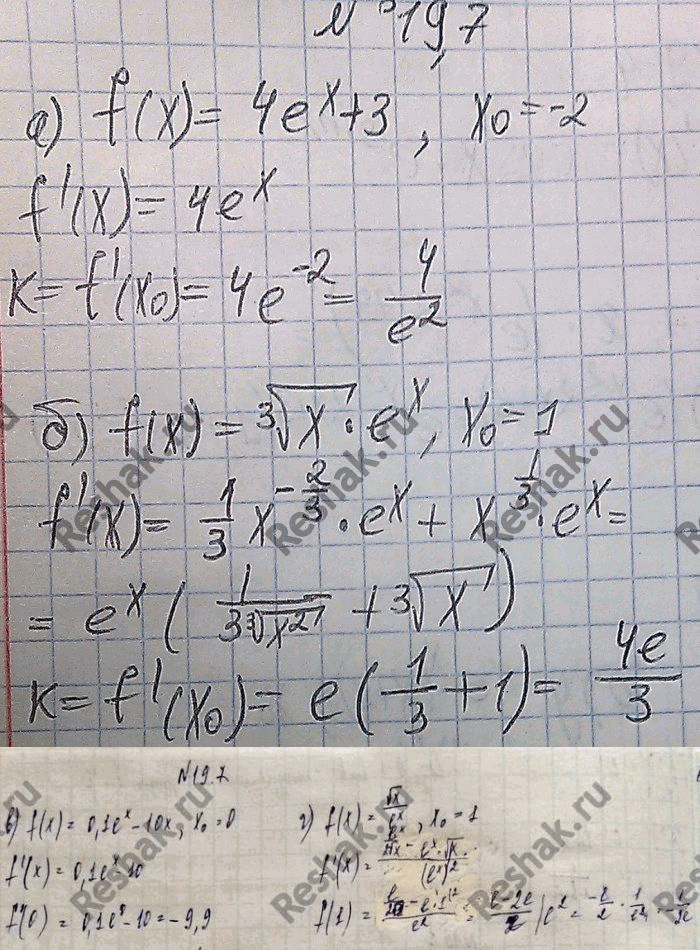 № 19,7
а) f(x) = 4e^x + 3, x0 = -2
f'(x) = 4e^x
k = f'(x0) = 4e^-2 = 4/e^2
б) f(x) = ∛x · e^x, x0 = 1
f'(x) = 1/3 x^-2/3 · e^x + x^1/3 · e^x =
= e^x (1/(3∛x^2) + ∛x)
k = f'(x0) = e(1/3 + 1) = 4e/3
Reshak.ru
№19.7
в) f(x) = 0,1e^x - 10x, x0 = 0
f'(x) = 0,1e^x - 10
f'(0) = 0,1e^0 - 10 = -9,9
г) f(x) = √x/e^x, x0 = 1